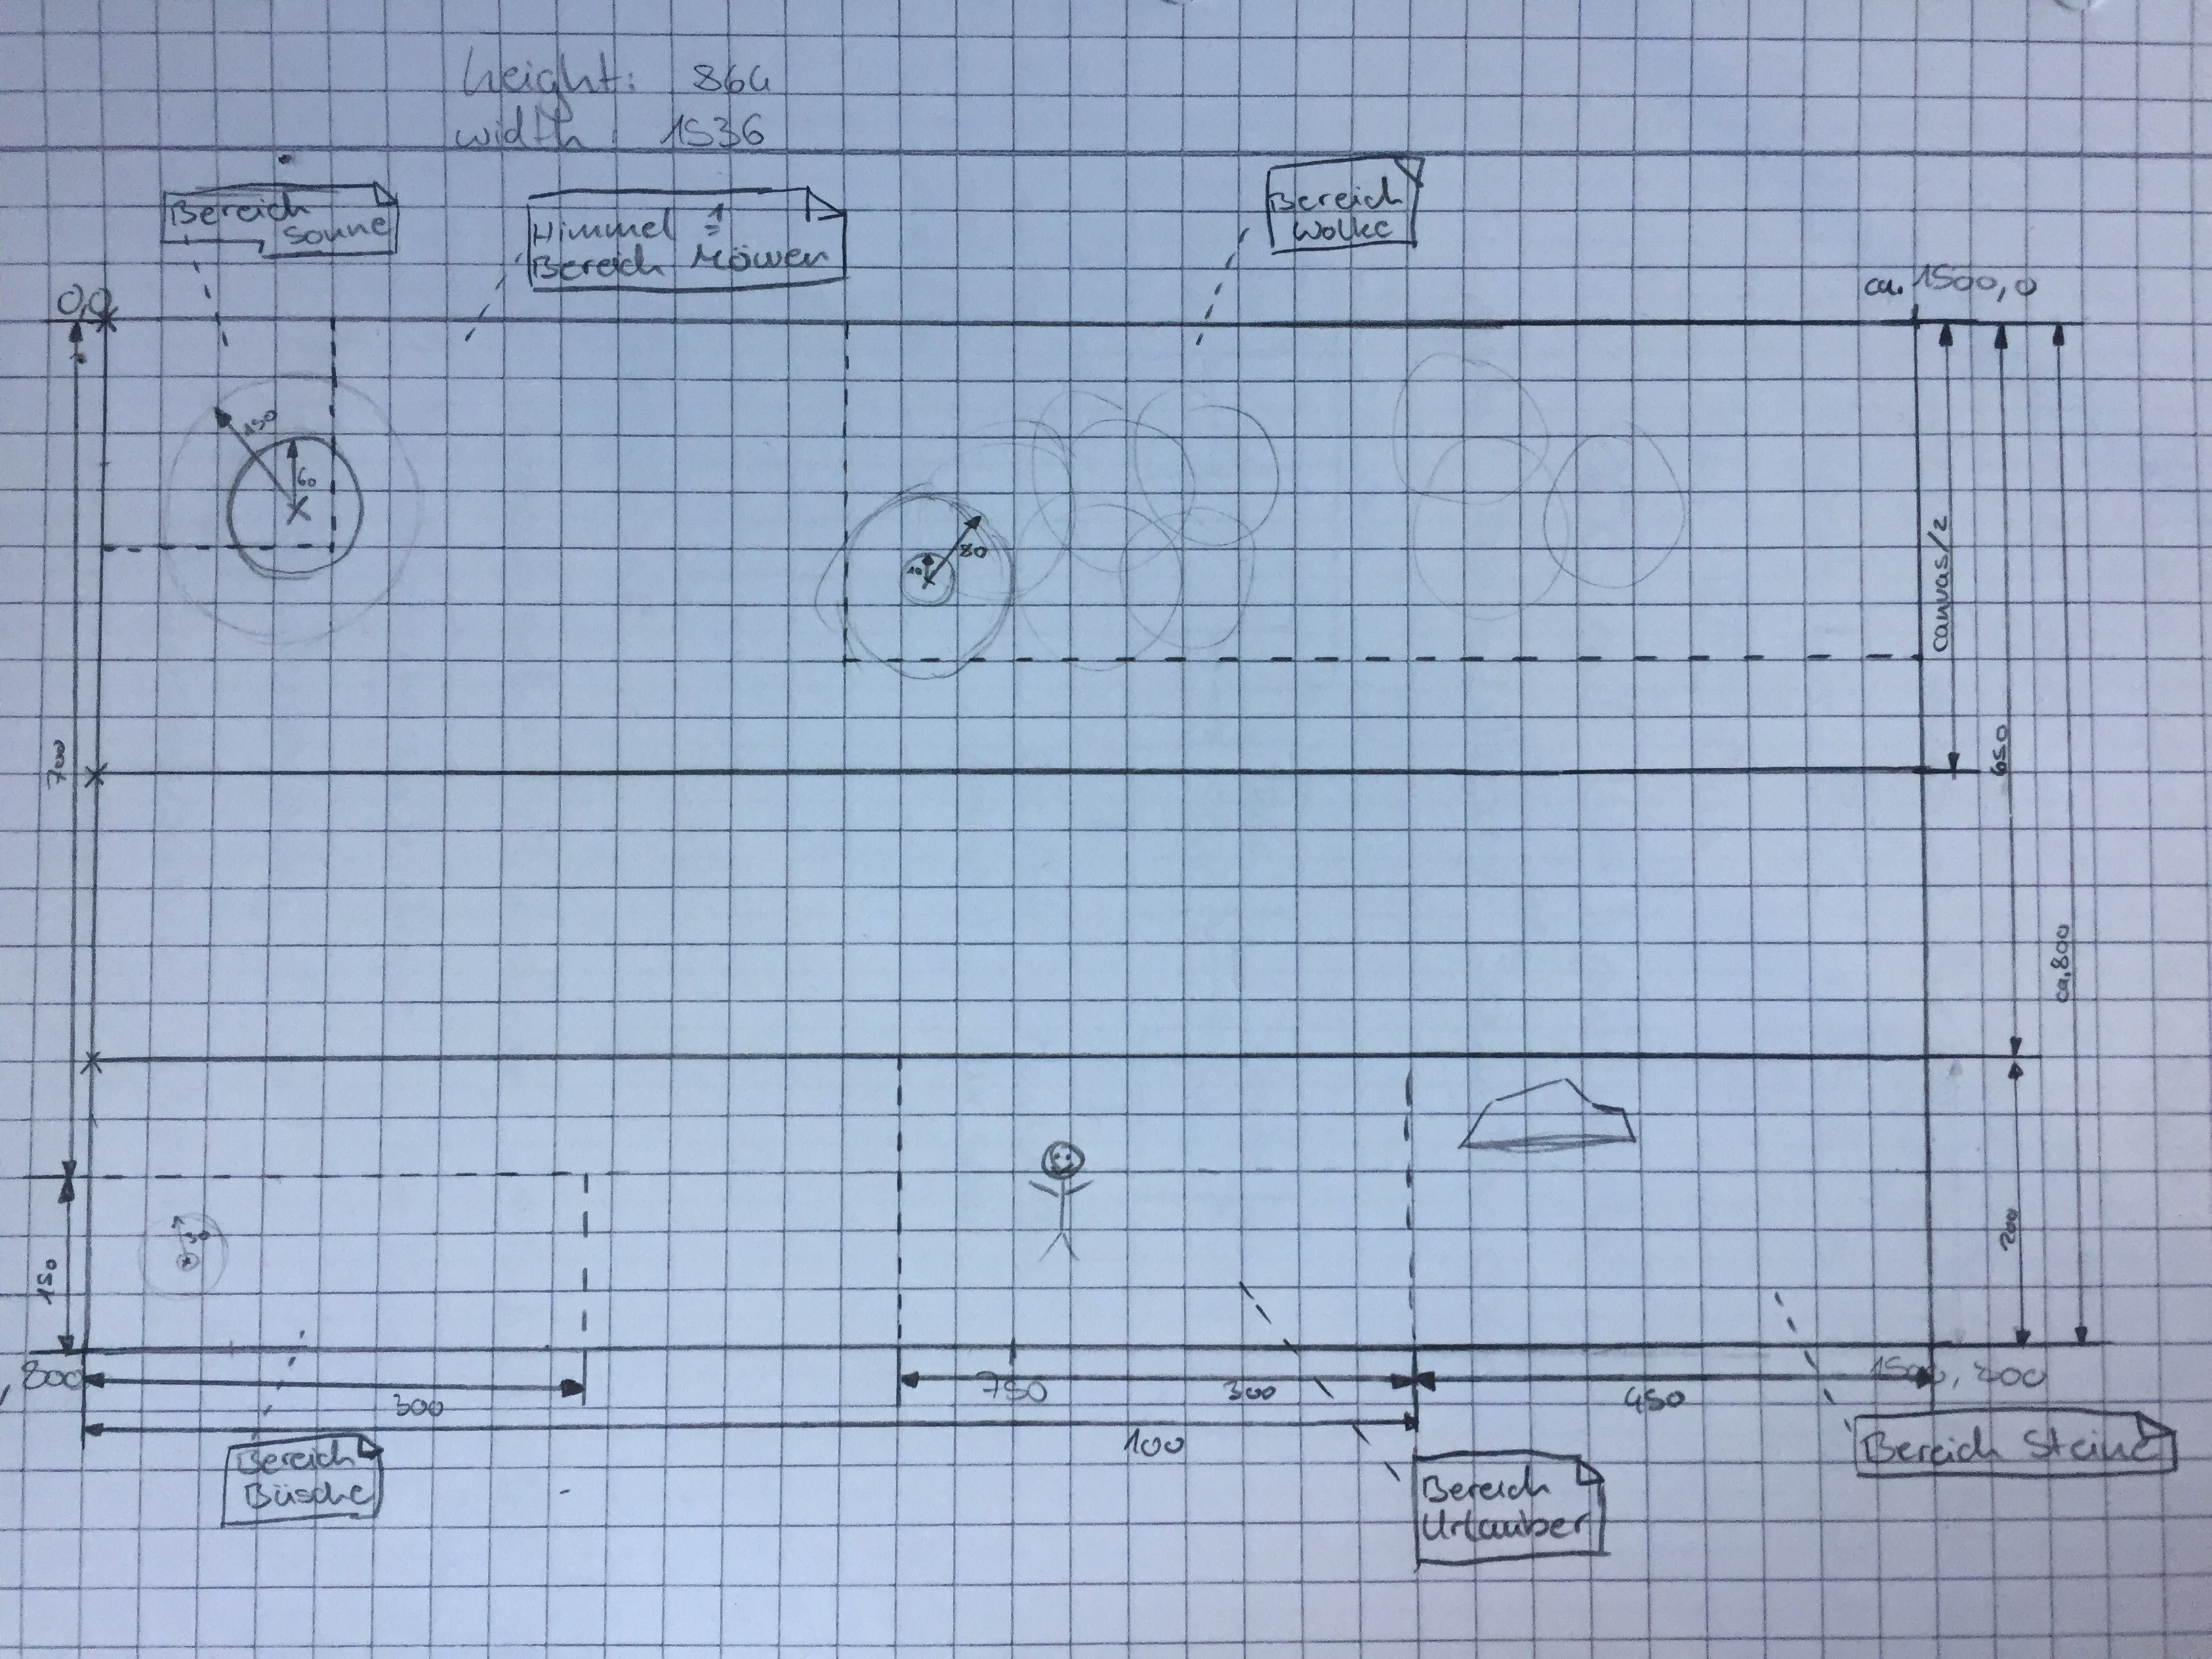 height: 864
width: 1536
Bereich
Sonne
Himmel ≙
Bereich Möwen
Bereich
Wolke
0,0
ca. 1500,0
150
60
80
10
canvas/2
700
650
ca. 800
150
200
800
300
750
300
450
1500, 800
100
Bereich
Büsche
Bereich
Urlauber
Bereich Steine